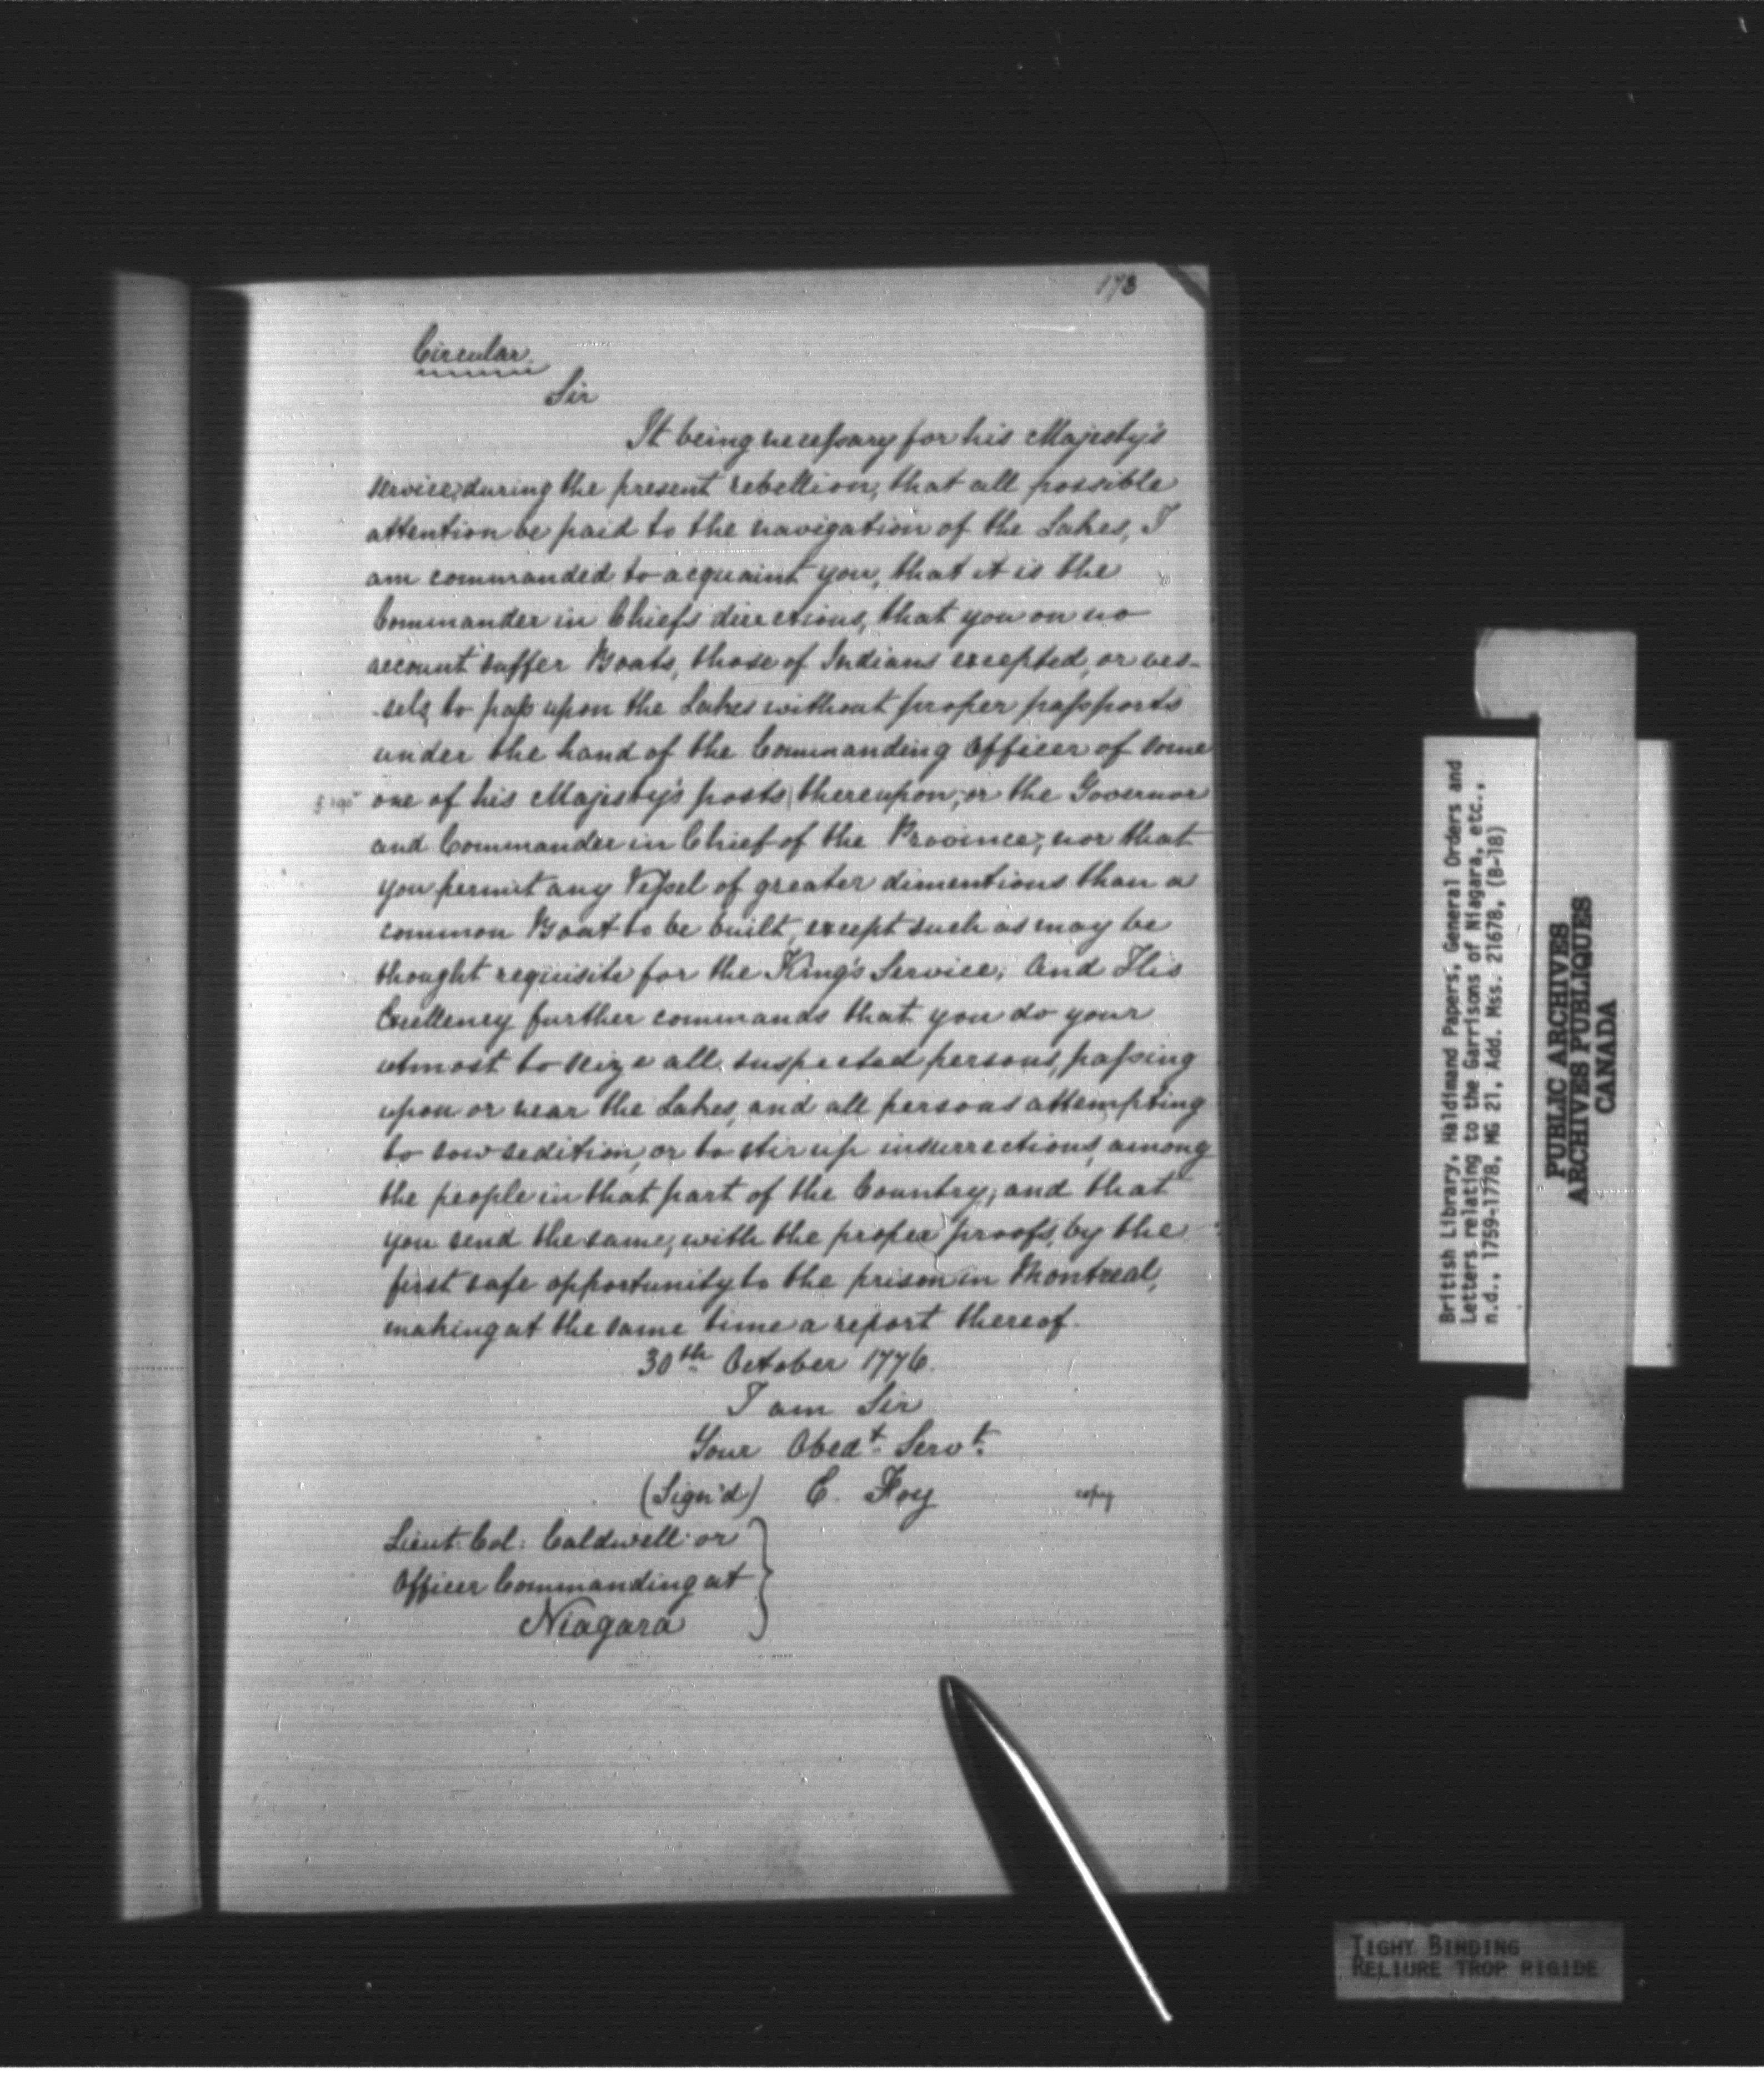 173
Circular.
Sir
It being necessary for his Majesty's
service, during the present rebellion, that all possible
attention be paid to the navigation of the Lakes, I
am commanded to acquaint you, that it is the
Commander in Chief's directions, that you on no
account suffer Boats, those of Indians excepted, or ves-
-sels to pass upon the Lakes without proper passports
under the hand of the Commanding Officer of some
one of his Majesty's posts thereupon, or the Governor
and Commander in Chief of the Province; nor that
you permit any Vessel of greater dimentions than a
common Boat to be built, except such as may be
thought requisite for the King's Service; And His
Excellency further commands that you do your
utmost to seize all suspected persons, passing
upon or near the Lakes, and all persons attempting
to sow sedition, or to stir up insurrections, among
the people in that part of the Country; and that
you send the same, with the proper proofs, by the
first safe opportunity to the prison in Montreal,
making at the same time a report thereof.
30th October 1776.
I am Sir
Your Obedt. Servt.
(Sign'd) E. Foy
copy
Lieut: Col: Caldwell or
Officer Commanding at
Niagara
British Library, Haldimand Papers, General Orders and
Letters relating to the Garrisons of Niagara, etc.,
n.d., 1759-1778, MG 21, Add. Mss. 21678, (B-18)
PUBLIC ARCHIVES
ARCHIVES PUBLIQUES
CANADA
TIGHT BINDING
RELIURE TROP RIGIDE